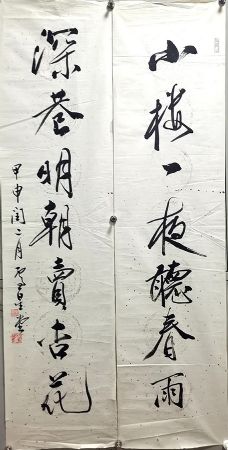 小楼一夜聽春雨
深巷明朝賣杏花
甲申閏二月